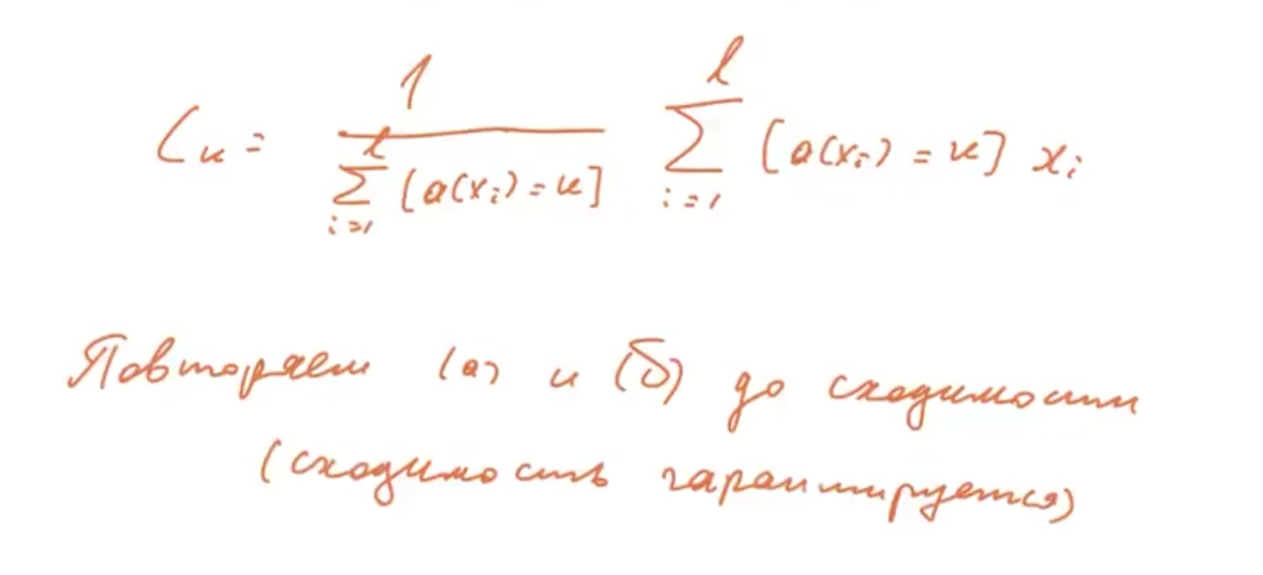 C_k = \frac{1}{\sum_{i=1}^{l} [a(x_i) = k]} \sum_{i=1}^{l} [a(x_i) = k] x_i
Повторяем (а) и (б) до сходимости
(сходимость гарантируется)